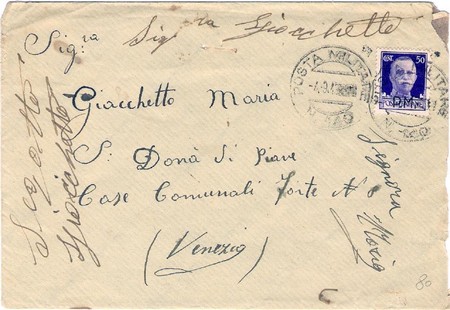 Sig.ra
Sig ra Giacchetto
POSTA MILITARE
50
P.M.
Giacchetto Maria
S. Donà di Piave
Case Comunali Forte N 8
(Venezia)
Giacchetto
Signora
Maria
80